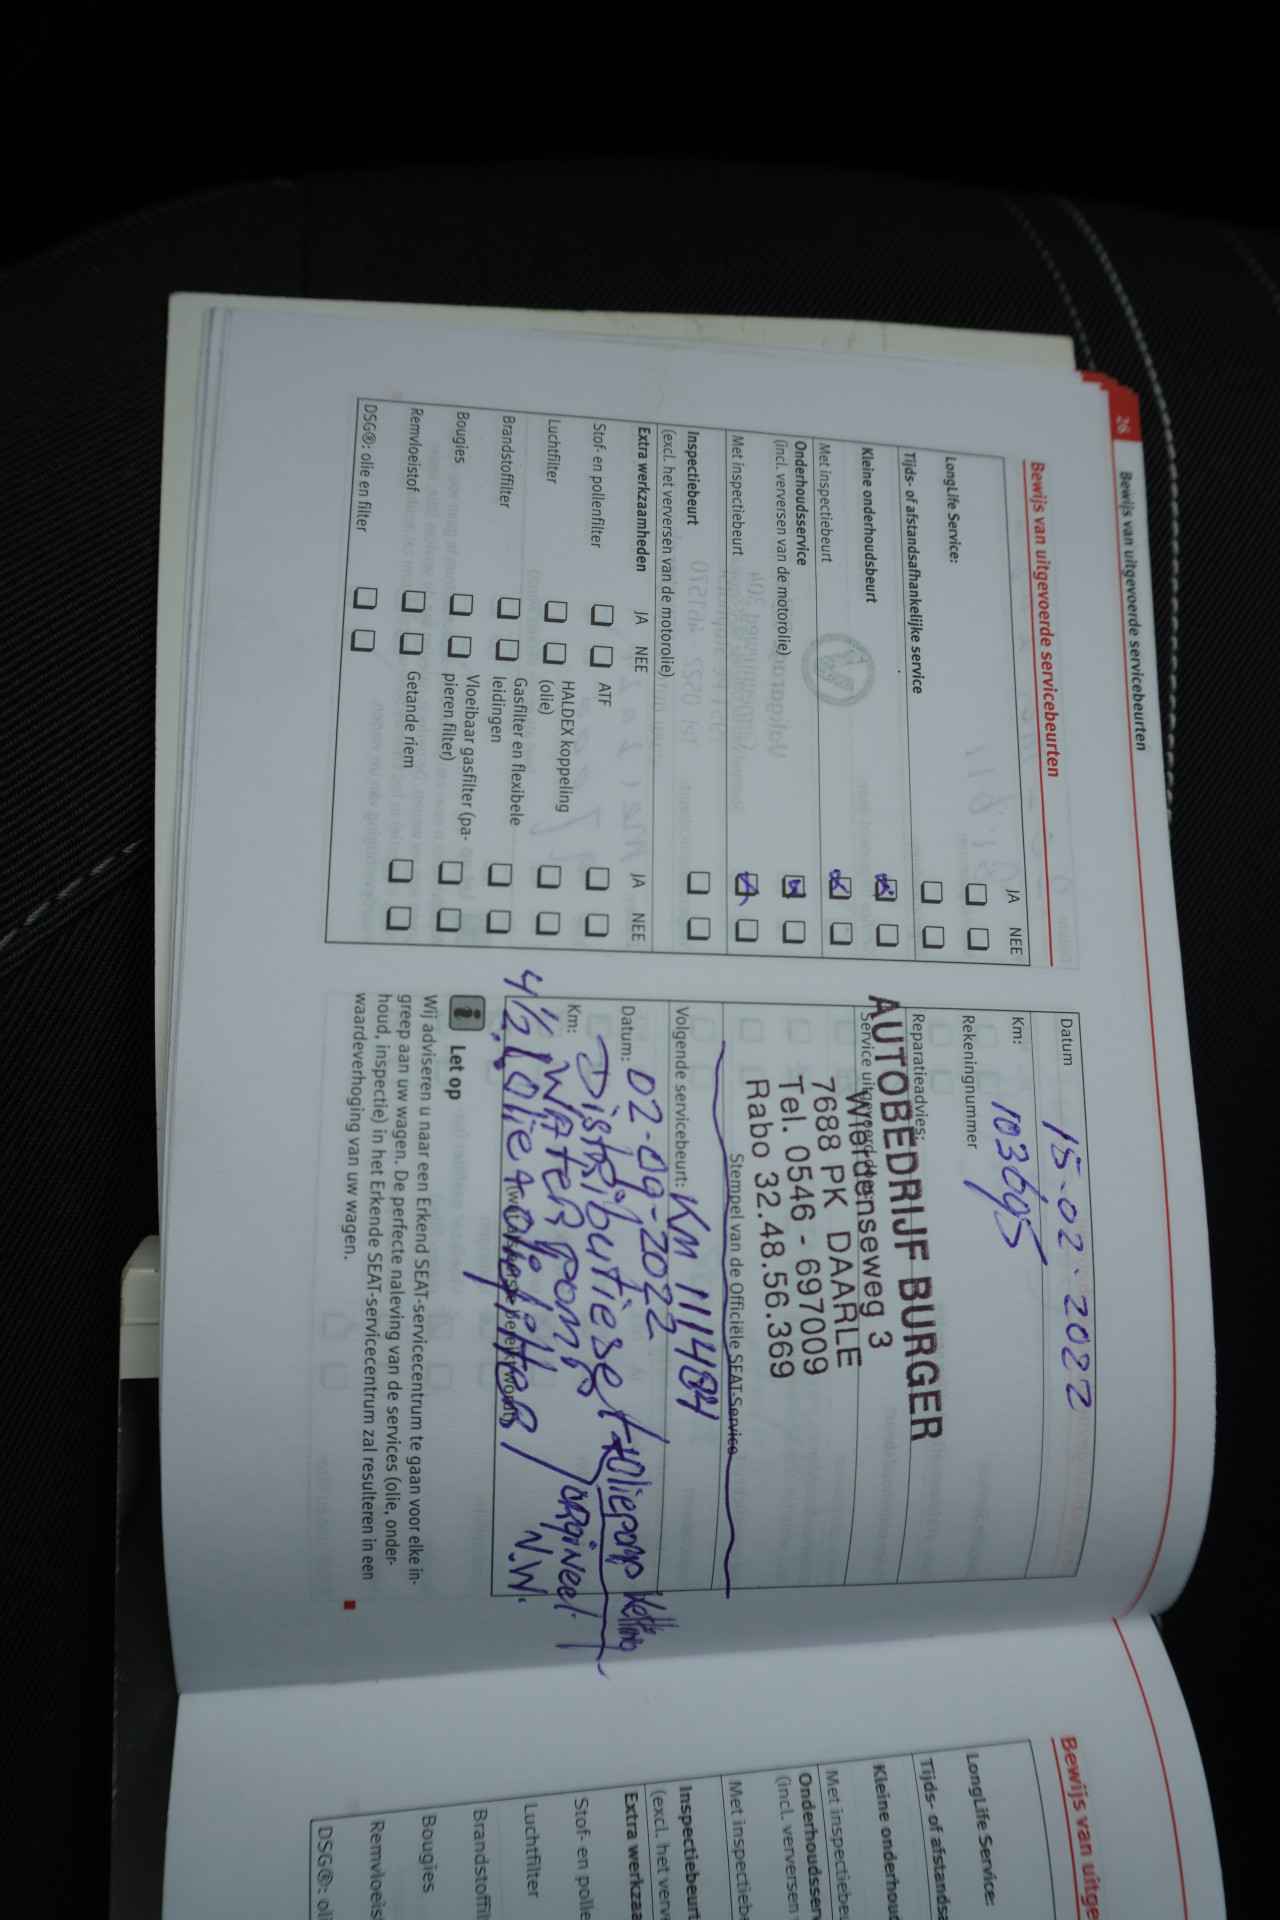 26
Bewijs van uitgevoerde servicebeurten
Bewijs van uitgevoerde servicebeurten
JA NEE
LongLife Service:
Tijds- of afstandsafhankelijke service
Kleine onderhoudsbeurt
Met inspectiebeurt
Onderhoudsservice
(incl. verversen van de motorolie)
Met inspectiebeurt
Inspectiebeurt
(excl. het verversen van de motorolie)
Extra werkzaamheden JA NEE JA NEE
Stof- en pollenfilter
ATF
Luchtfilter
HALDEX koppeling
(olie)
Brandstoffilter
Gasfilter en flexibele
leidingen
Bougies
Vloeibaar gasfilter (pa-
pieren filter)
Remvloeistof
Getande riem
DSG®: olie en filter
Datum 15-02-2022
Km: 103695
Rekeningnummer
Reparatieadvies:
AUTOBEDRIJF BURGER
Service uitgevoerd door:
Wierdenseweg 3
7688 PK DAARLE
Tel. 0546 - 697009
Rabo 32.48.56.369
Stempel van de Officiële SEAT-Service
Volgende servicebeurt: Km 111484
Datum: 02-09-2022
Distributieset + oliepomp ketting
Km: Waterpomp
4 1/2 L olie + oliefilter / orgineel
N.W.
Let op
Wij adviseren u naar een Erkend SEAT-servicecentrum te gaan voor elke in-
greep aan uw wagen. De perfecte naleving van de services (olie, onder-
houd, inspectie) in het Erkende SEAT-servicecentrum zal resulteren in een
waardeverhoging van uw wagen.
Bewijs van uitge
LongLife Service:
Tijds- of afstandsa
Kleine onderhou
Met inspectiebeu
Onderhoudsserv
(incl. verversen
Met inspectiebe
Inspectiebeurt
(excl. het verve
Extra werkzaa
Stof- en polle
Luchtfilter
Brandstoffil
Bougies
Remvloeist
DSG®: oli